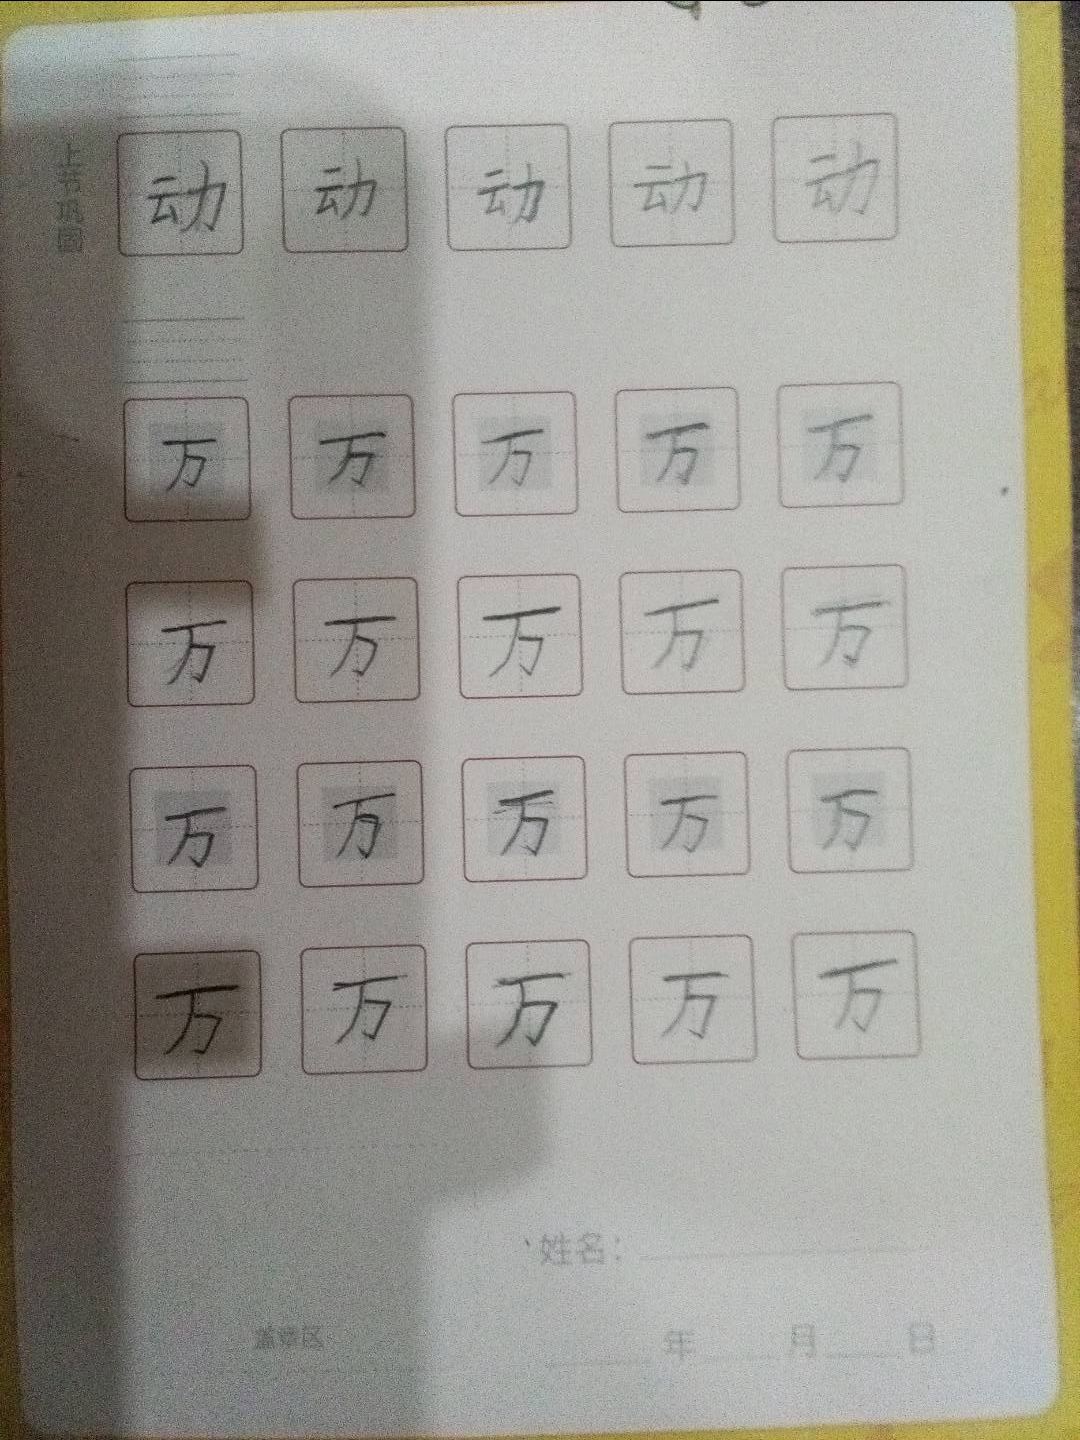 上节巩固
动 动 动 动 动
万 万 万 万 万
万 万 万 万 万
万 万 万 万 万
万 万 万 万 万
姓名：
盖章区
年 月 日